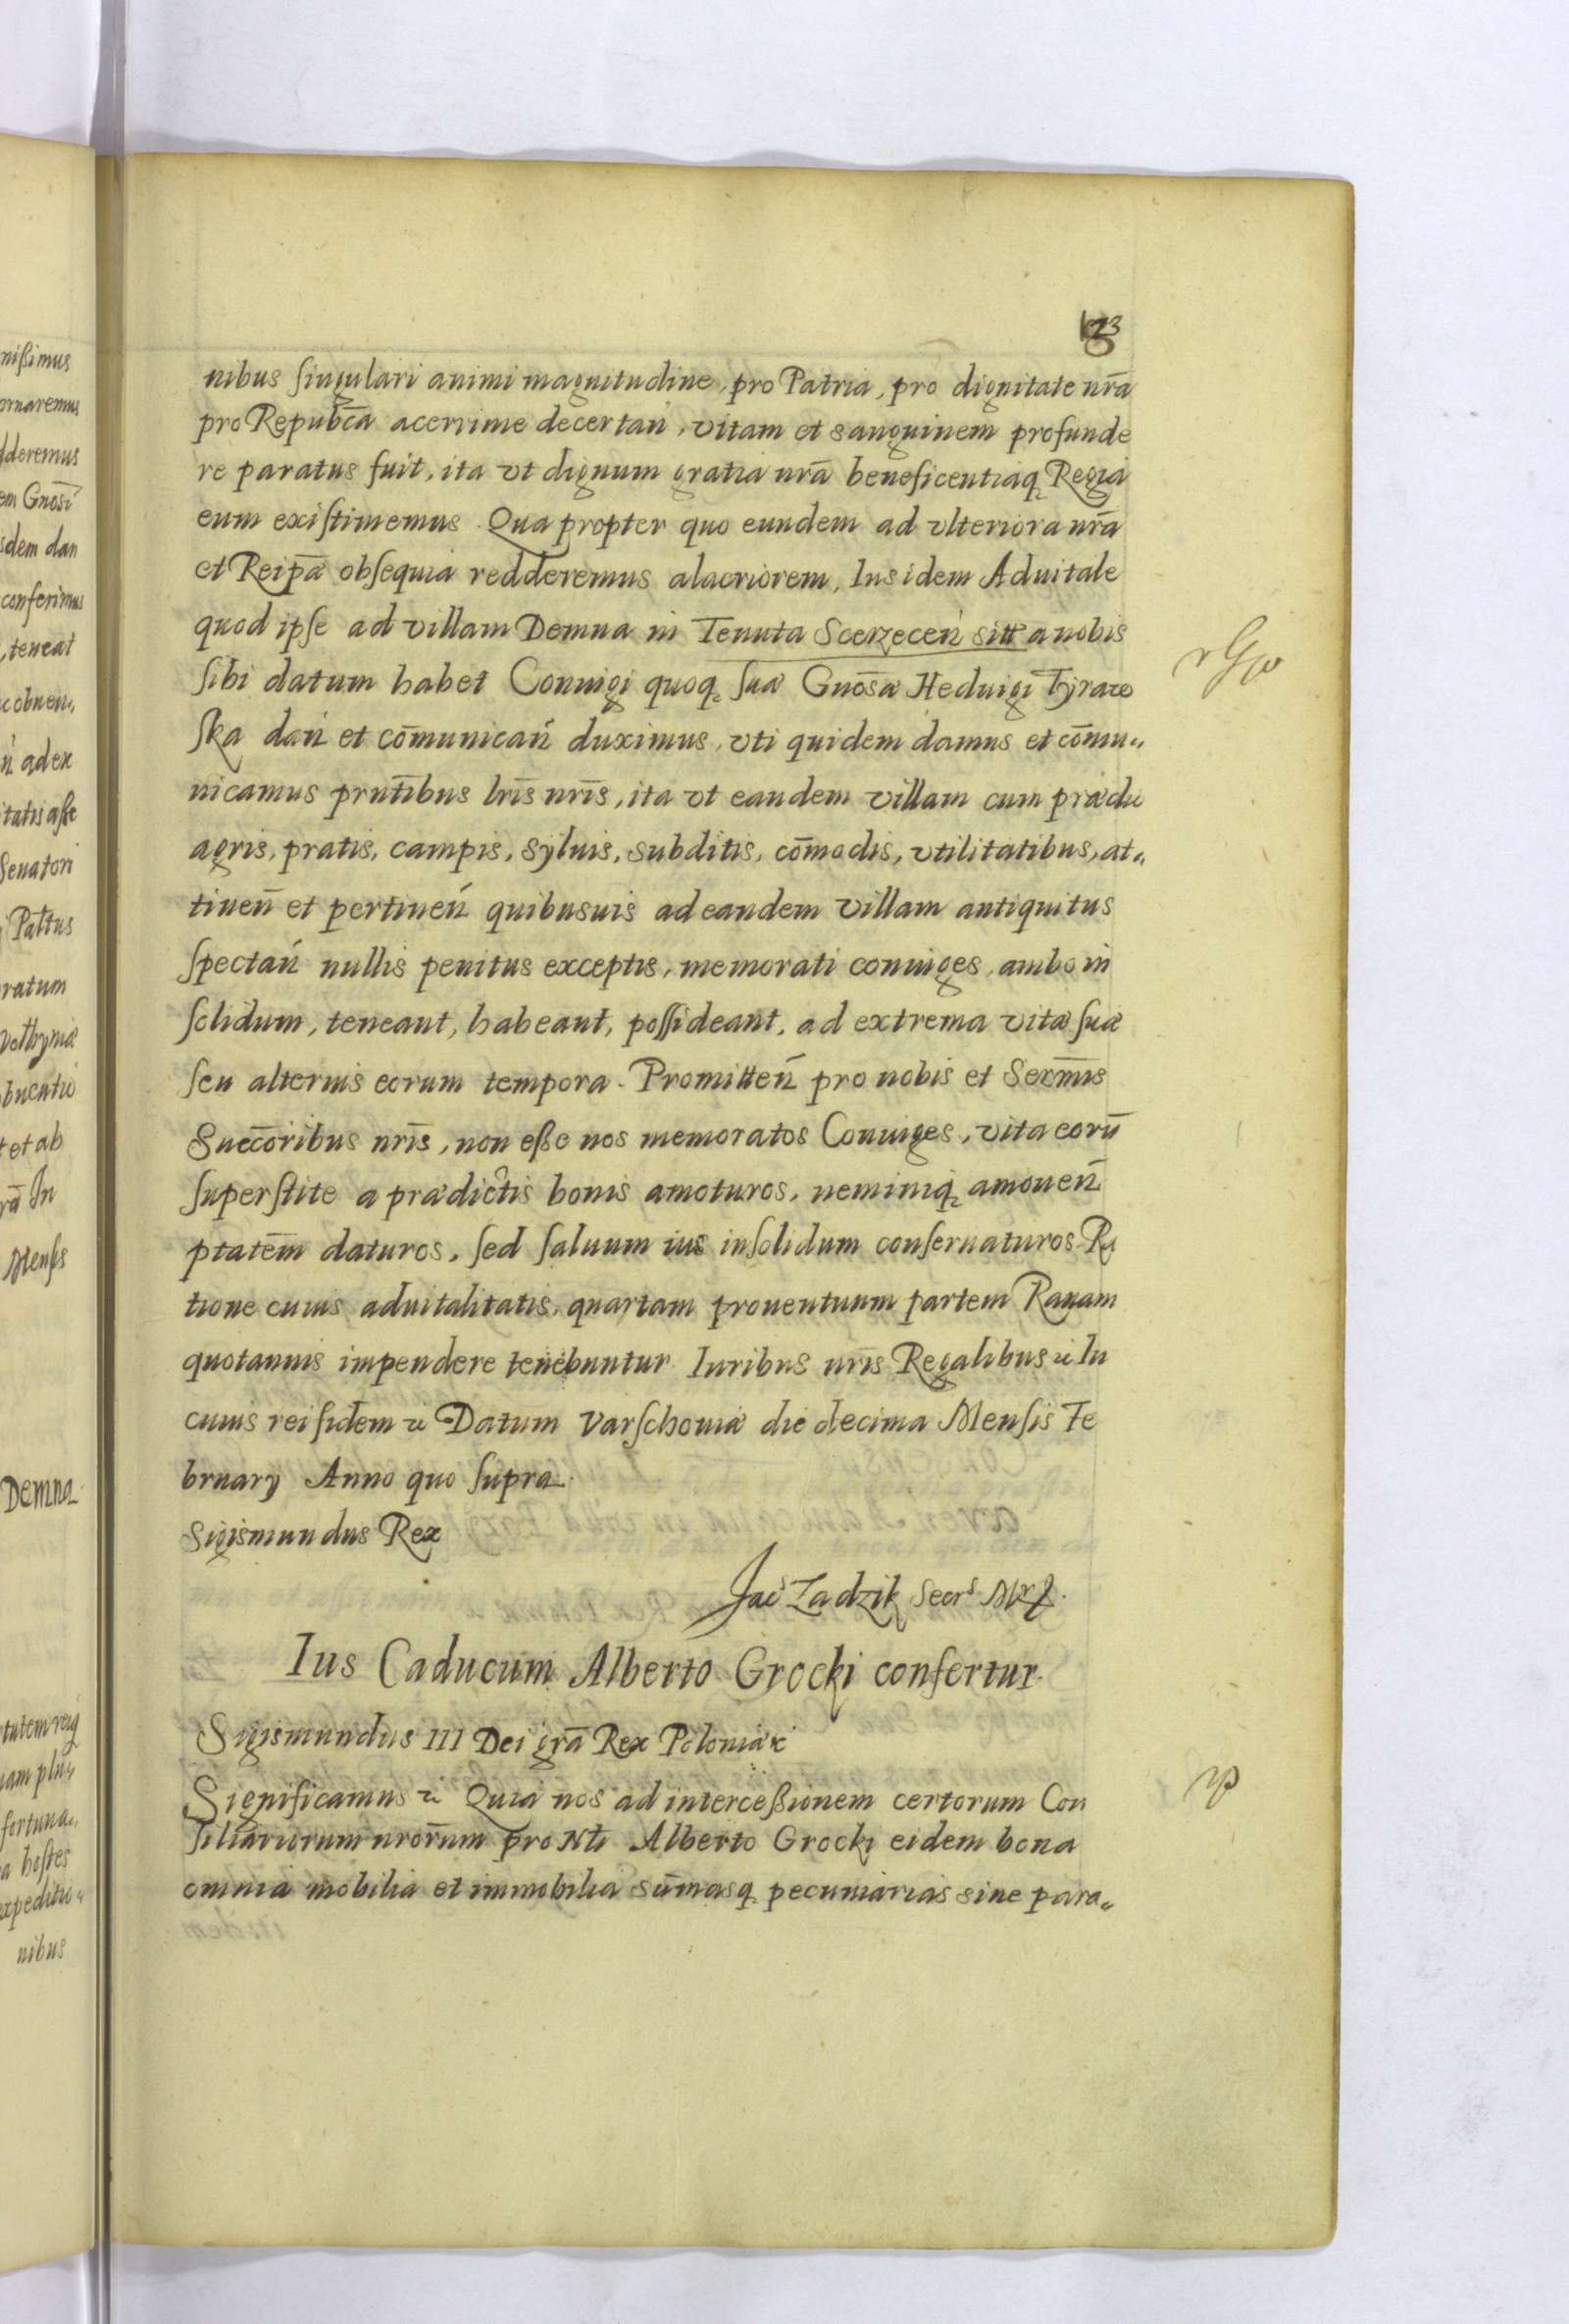 nibus singulari animi magnitudine, pro Patria, pro dignitate nr̃a
pro Repub̃ca acerrime decertań, vitam et sanguinem profunde
re paratus fuit, ita vt dignum gratia nr̃a beneficentiaq, Regia
eum existimemus. Qua propter quo eundem ad vlteriora nr̃a
et Reip̃æ obsequia redderemus alacriorem, Ius idem Aduitale
quod ipse ad villam Demna in Tenuta Scerzeceń sitt a nobis
sibi datum habet Coniugi quoq, suæ Gnõsæ Heduigi Tyraw
ska dań et cõmunicań duximus, vti quidem damus et cõmu„
nicamus prñtibus lr̃is nr̃is, ita vt eandem villam cum prædiis
agris, pratis, campis, syluis, subditis, cõmodis, vtilitatibus, at„
tineñ et pertineń quibusuis ad eandem villam antiquitus
spectań nullis penitus exceptis, memorati coniuges, ambo in
solidum, teneant, habeant, possideant, ad extrema vitæ suæ
seu alterius eorum tempora. Promitteñ pro nobis et Serm̃is
Succ̃oribus nr̃is, non eße nos memoratos Coniuges, vita eorũ
superstite a prædictis bonis amoturos, neminiq, amoueñ
ptatẽm daturos, sed saluum ius insolidum conseruaturos. Ra
tione cuius aduitalitatis, quartam prouentuum partem Rauam
quotannis impendere tenebuntur. Iuribus nr̃is Regalibus &c In
cuius rei fidem &c Datum Varschouiæ die decima Mensis Fe
bruary Anno quo supra.
Sigismundus Rex
Jac Zadzik Secr
Ius Caducum Alberto Grocki confertur.
Sigismundus III Dei grã Rex Poloniæ &c
Significamus &c Quia nos ad interceßionem certorum Con
siliariorum nror̃um pro Nłi Alberto Grocki eidem bona
omnia mobilia et immobilia sũmasq, pecuniarias sine para„